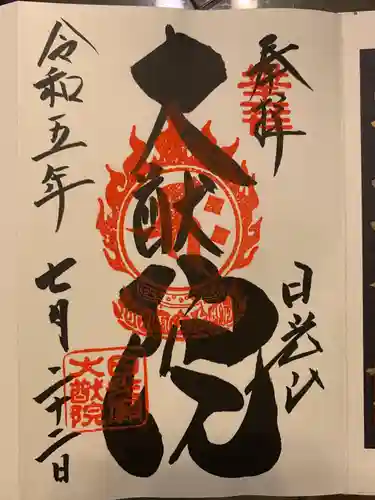 奉拝
日光山
大猷院
令和五年
七月二十二日
大猷院